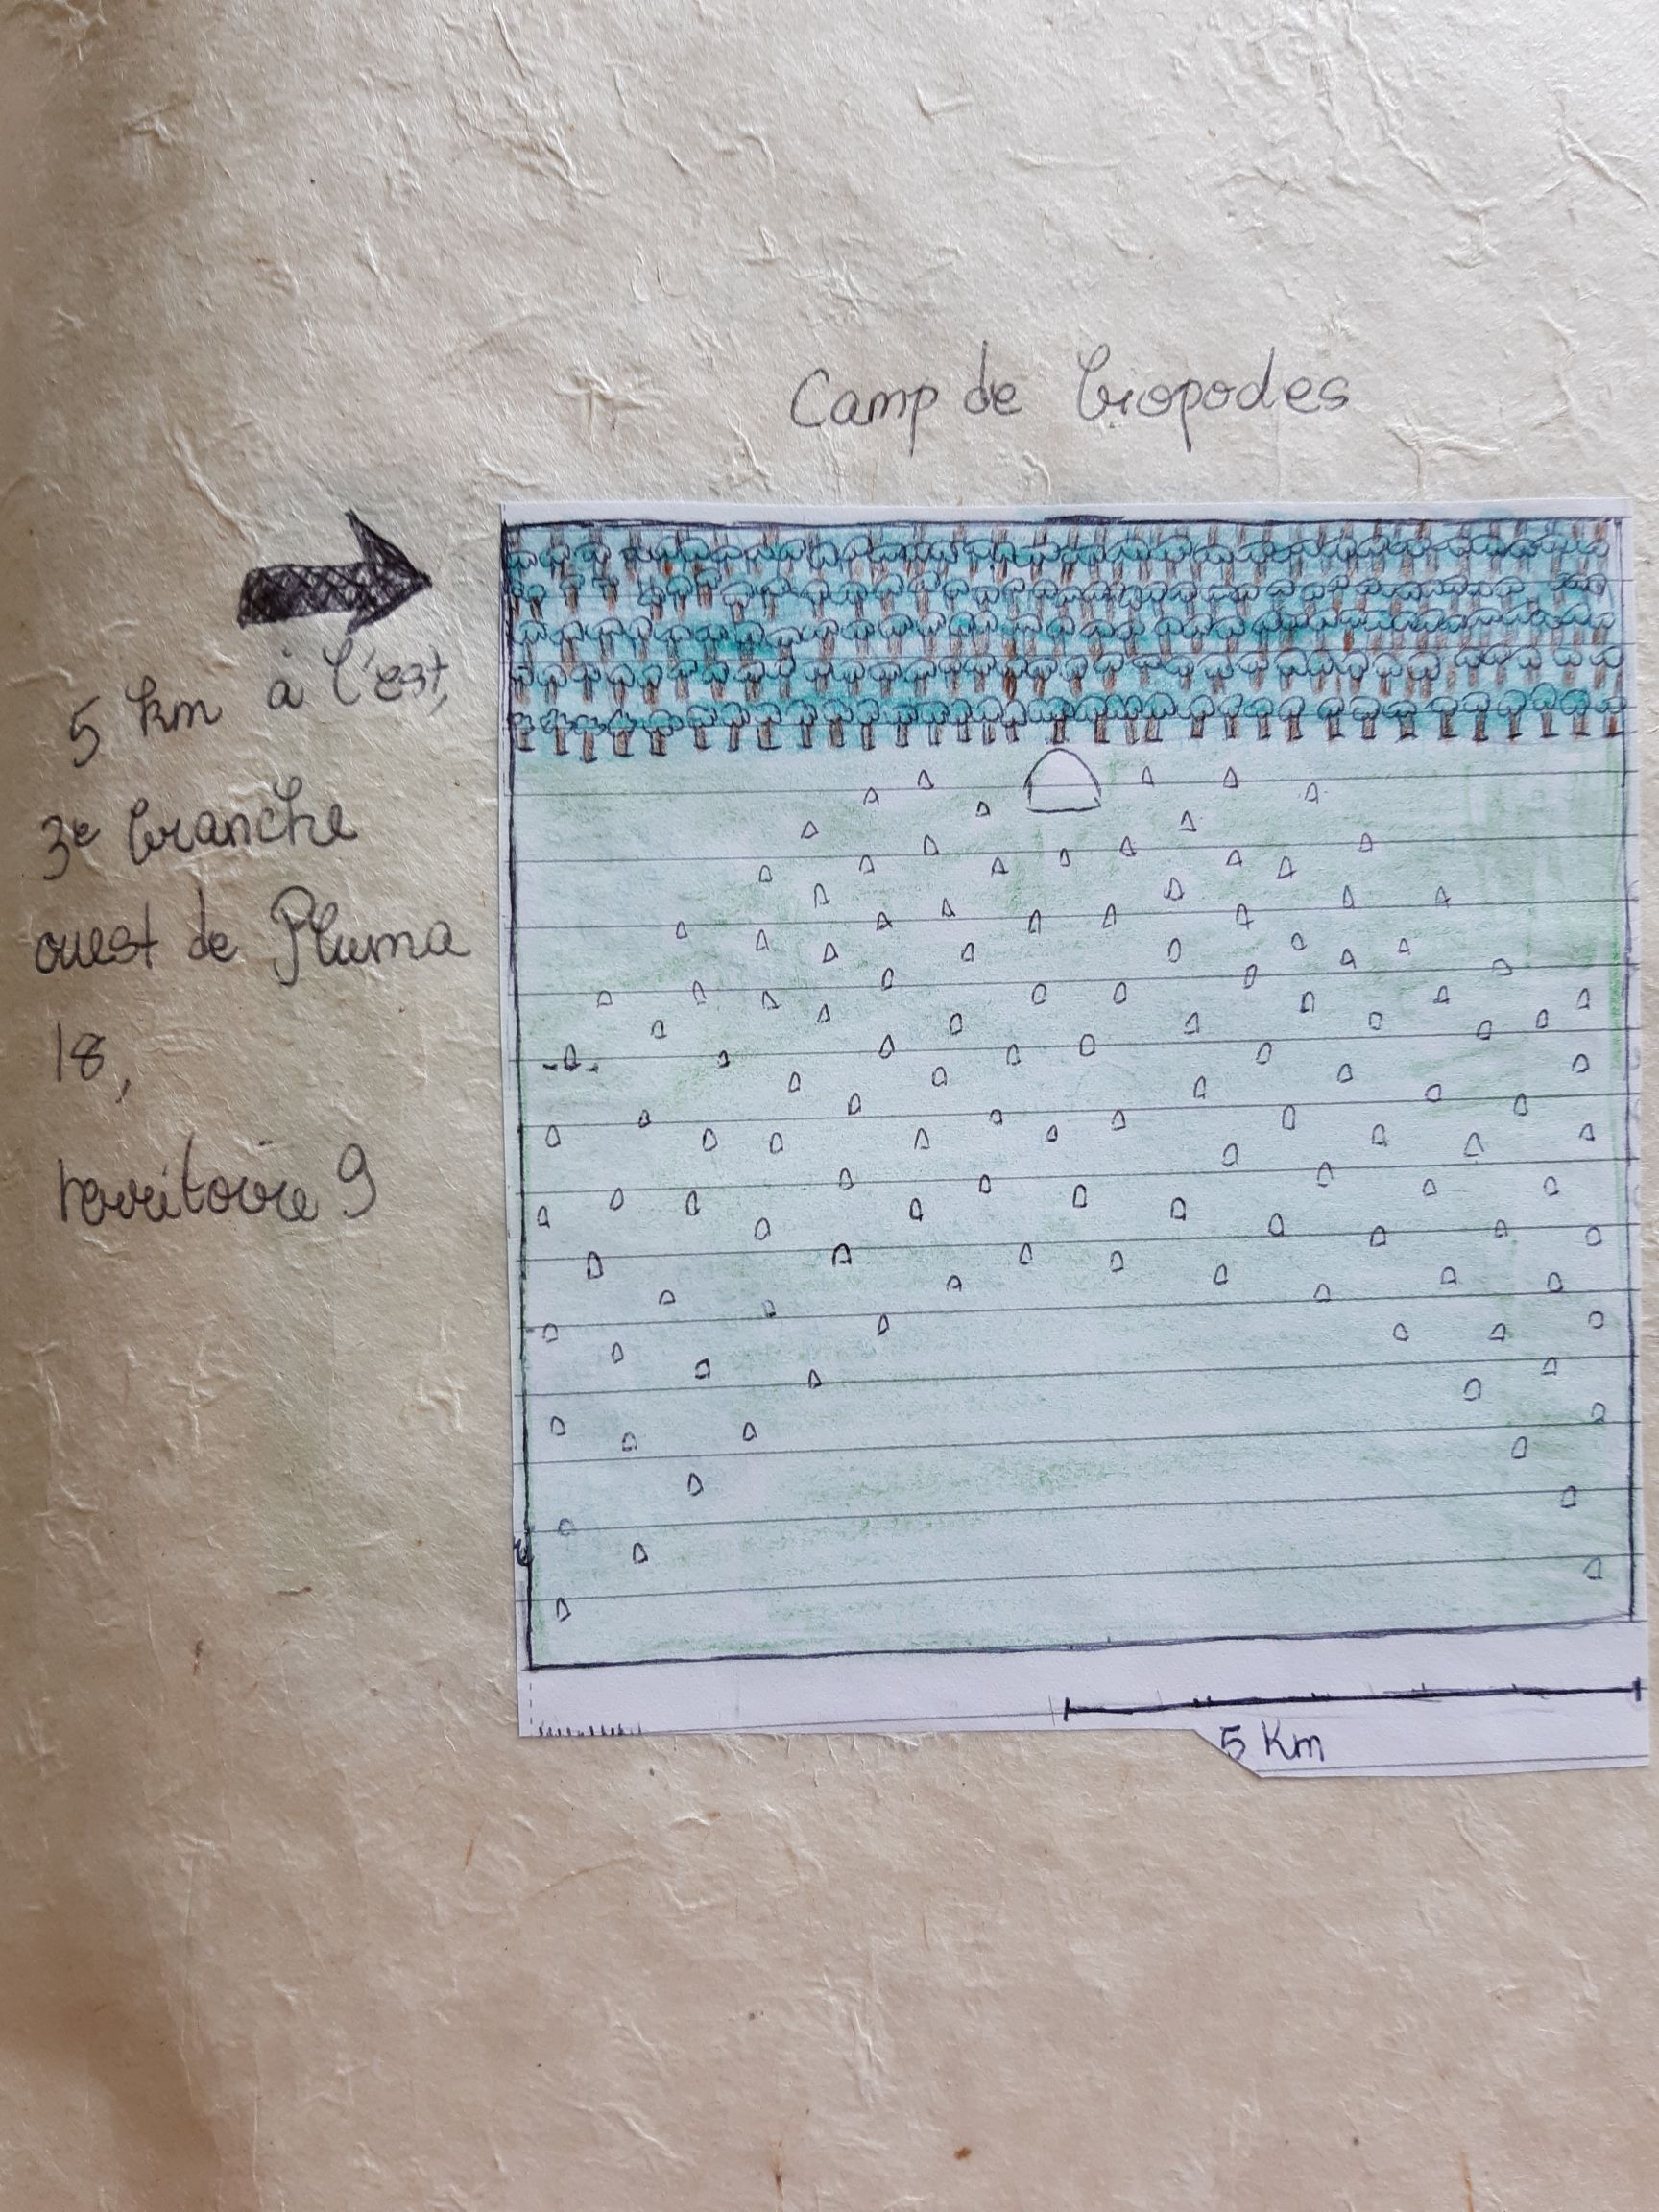 Camp de biopodes
5 km à l'est,
3e branche
ouest de Pluma
18,
territoire 9
5 Km